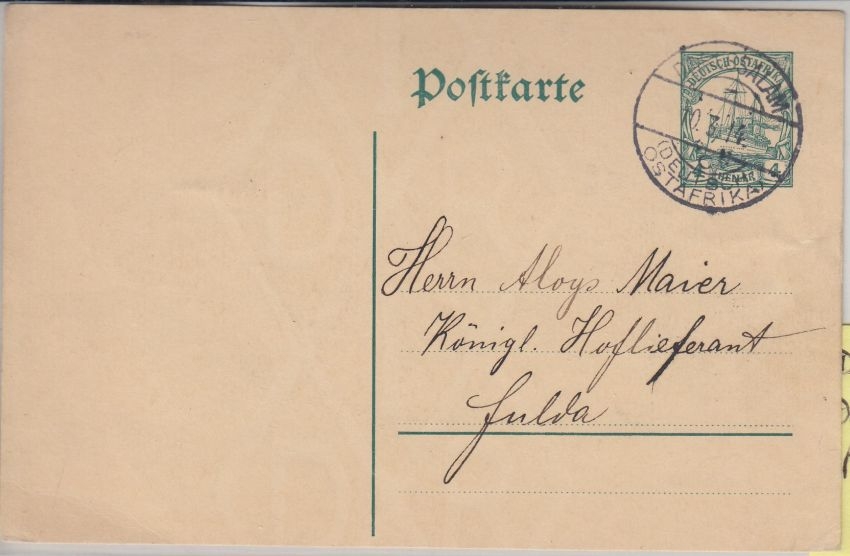 Postkarte
DEUTSCH-OSTAFRIKA
SALAM
10.3.14.
(DEUTSCH-
OSTAFRIKA)
4
Herrn Aloys Maier
Königl. Hoflieferant
Fulda